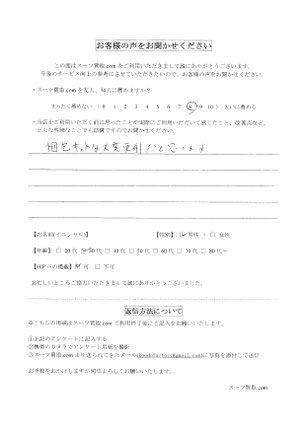 お客様の声をお聞かせください
この度はスーツ買取.comをご利用いただきまして誠にありがとうございます。
今後のサービス向上の参考にさせていただきたいので、お客様の声をお聞かせください。
・スーツ買取.comを友人、知人に薦めますか?
まったく薦めない (0 1 2 3 4 5 6 7 8 9 10) 大いに薦める
・当店をご利用いただく前に思ったことや実際にご利用いただいて感じたこと、改善点など、
どんな些細なことでも結構ですのでお聞かせください。
梱包キットは大変便利だと思います
【お名前(イニシャル)】 【性別】 男性 ・ □ 女性
【年齢】 □ 20代 30代 □ 40代 □ 50代 □ 60代 □ 70代 □ 80代~
【HPへの掲載】 可 □ 不可
お忙しいところご協力いただきまして誠にありがとうございました。
返信方法について
※こちらの用紙はスーツ買取.comご利用終了後にご記入をお願いいたします。
①上記のアンケートに記入する
②携帯のカメラでアンケート用紙を撮影
③スーツ買取.comより送られてきたメール に写真を添付して送信
お手数をおかけしますが何卒よろしくお願いいたします。
スーツ買取.com